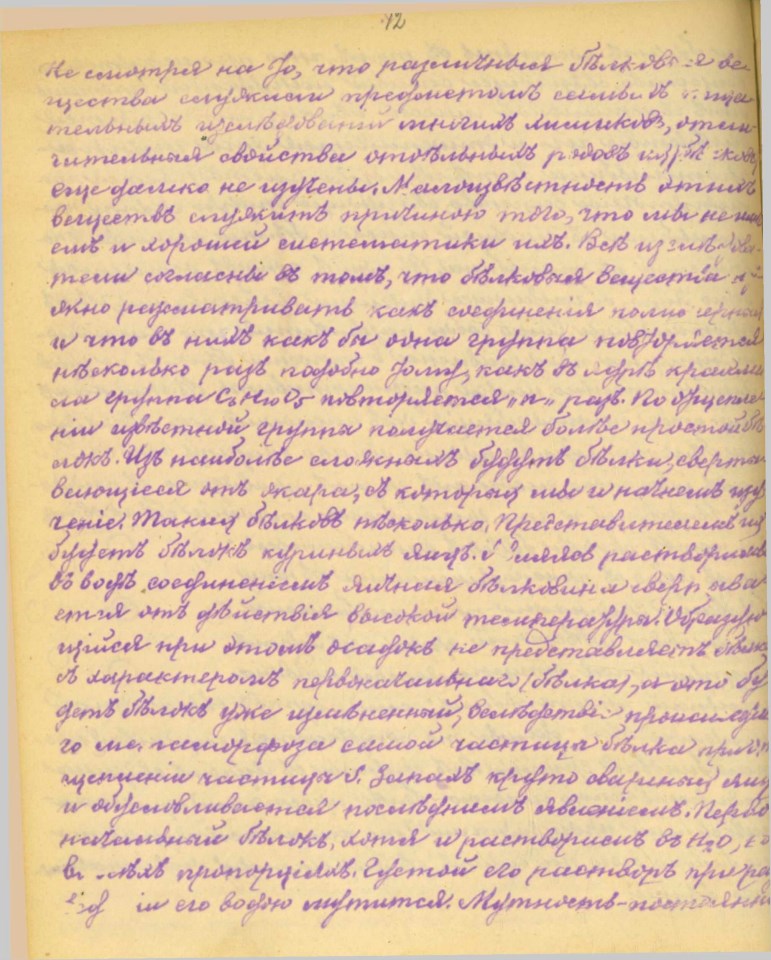 12
Не смотря на то, что различныя бѣлковыя ве-
щества служили предметомъ самыхъ тща
тельныхъ изслѣдованій многихъ химиковъ, отли-
чительныя свойства отдѣльныхъ родовъ
еще далеко не изучены. Малоизвѣстность этихъ
веществъ служитъ причиною того, что мы не им
емъ и хорошей систематики ихъ. Всѣ изслѣдова-
тели согласны въ томъ, что бѣлковыя вещества
жно разсматривать какъ соединенія полимерныя
и что въ нихъ какъ бы одна группа повторяется
нѣсколько разъ подобно тому, какъ въ крахма
ла группа C6H10O5 повторяется „n„ разъ. По отщепле
ніи извѣстной группы получается болѣе простой бѣ
локъ. Изъ наиболѣе сложныхъ будутъ бѣлки, сверты
вающіеся отъ жара, съ которыхъ мы и начнемъ изу
ченіе. Такихъ бѣлковъ нѣсколько. Представителемъ ихъ
будетъ бѣлокъ куриныхъ яицъ. растворимая
въ водѣ соединеніемъ яичная бѣлковина сверт ыва
ется отъ дѣйствія высокой температуры. Образую
щійся при этомъ осадокъ не представляетъ бѣлка
съ характеромъ первоначальнаго (бѣлка), а это бу
детъ бѣлокъ уже измѣненный, вслѣдствіе происшедша
го метаморфоза самой частицы бѣлка при от
щепленіи частицы S. Запахъ круто сваренныхъ яицъ
и обусловливается послѣднимъ явленіемъ. Перво
начальный бѣлокъ, хотя и растворимъ въ H2O, но
въ пропорціяхъ. Густой его растворъ при раз
его водою мутится. Мутность-постоянна